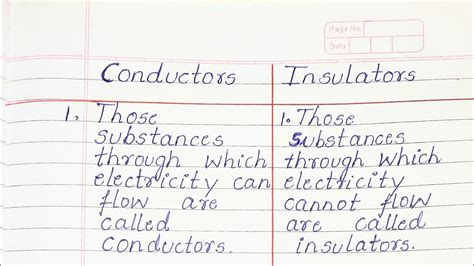 Page No.
Date
Conductors Insulators
1. Those 1. Those
substances substances
through which through which
electricity can electricity
flow are cannot flow
called are called
conductors. insulators.